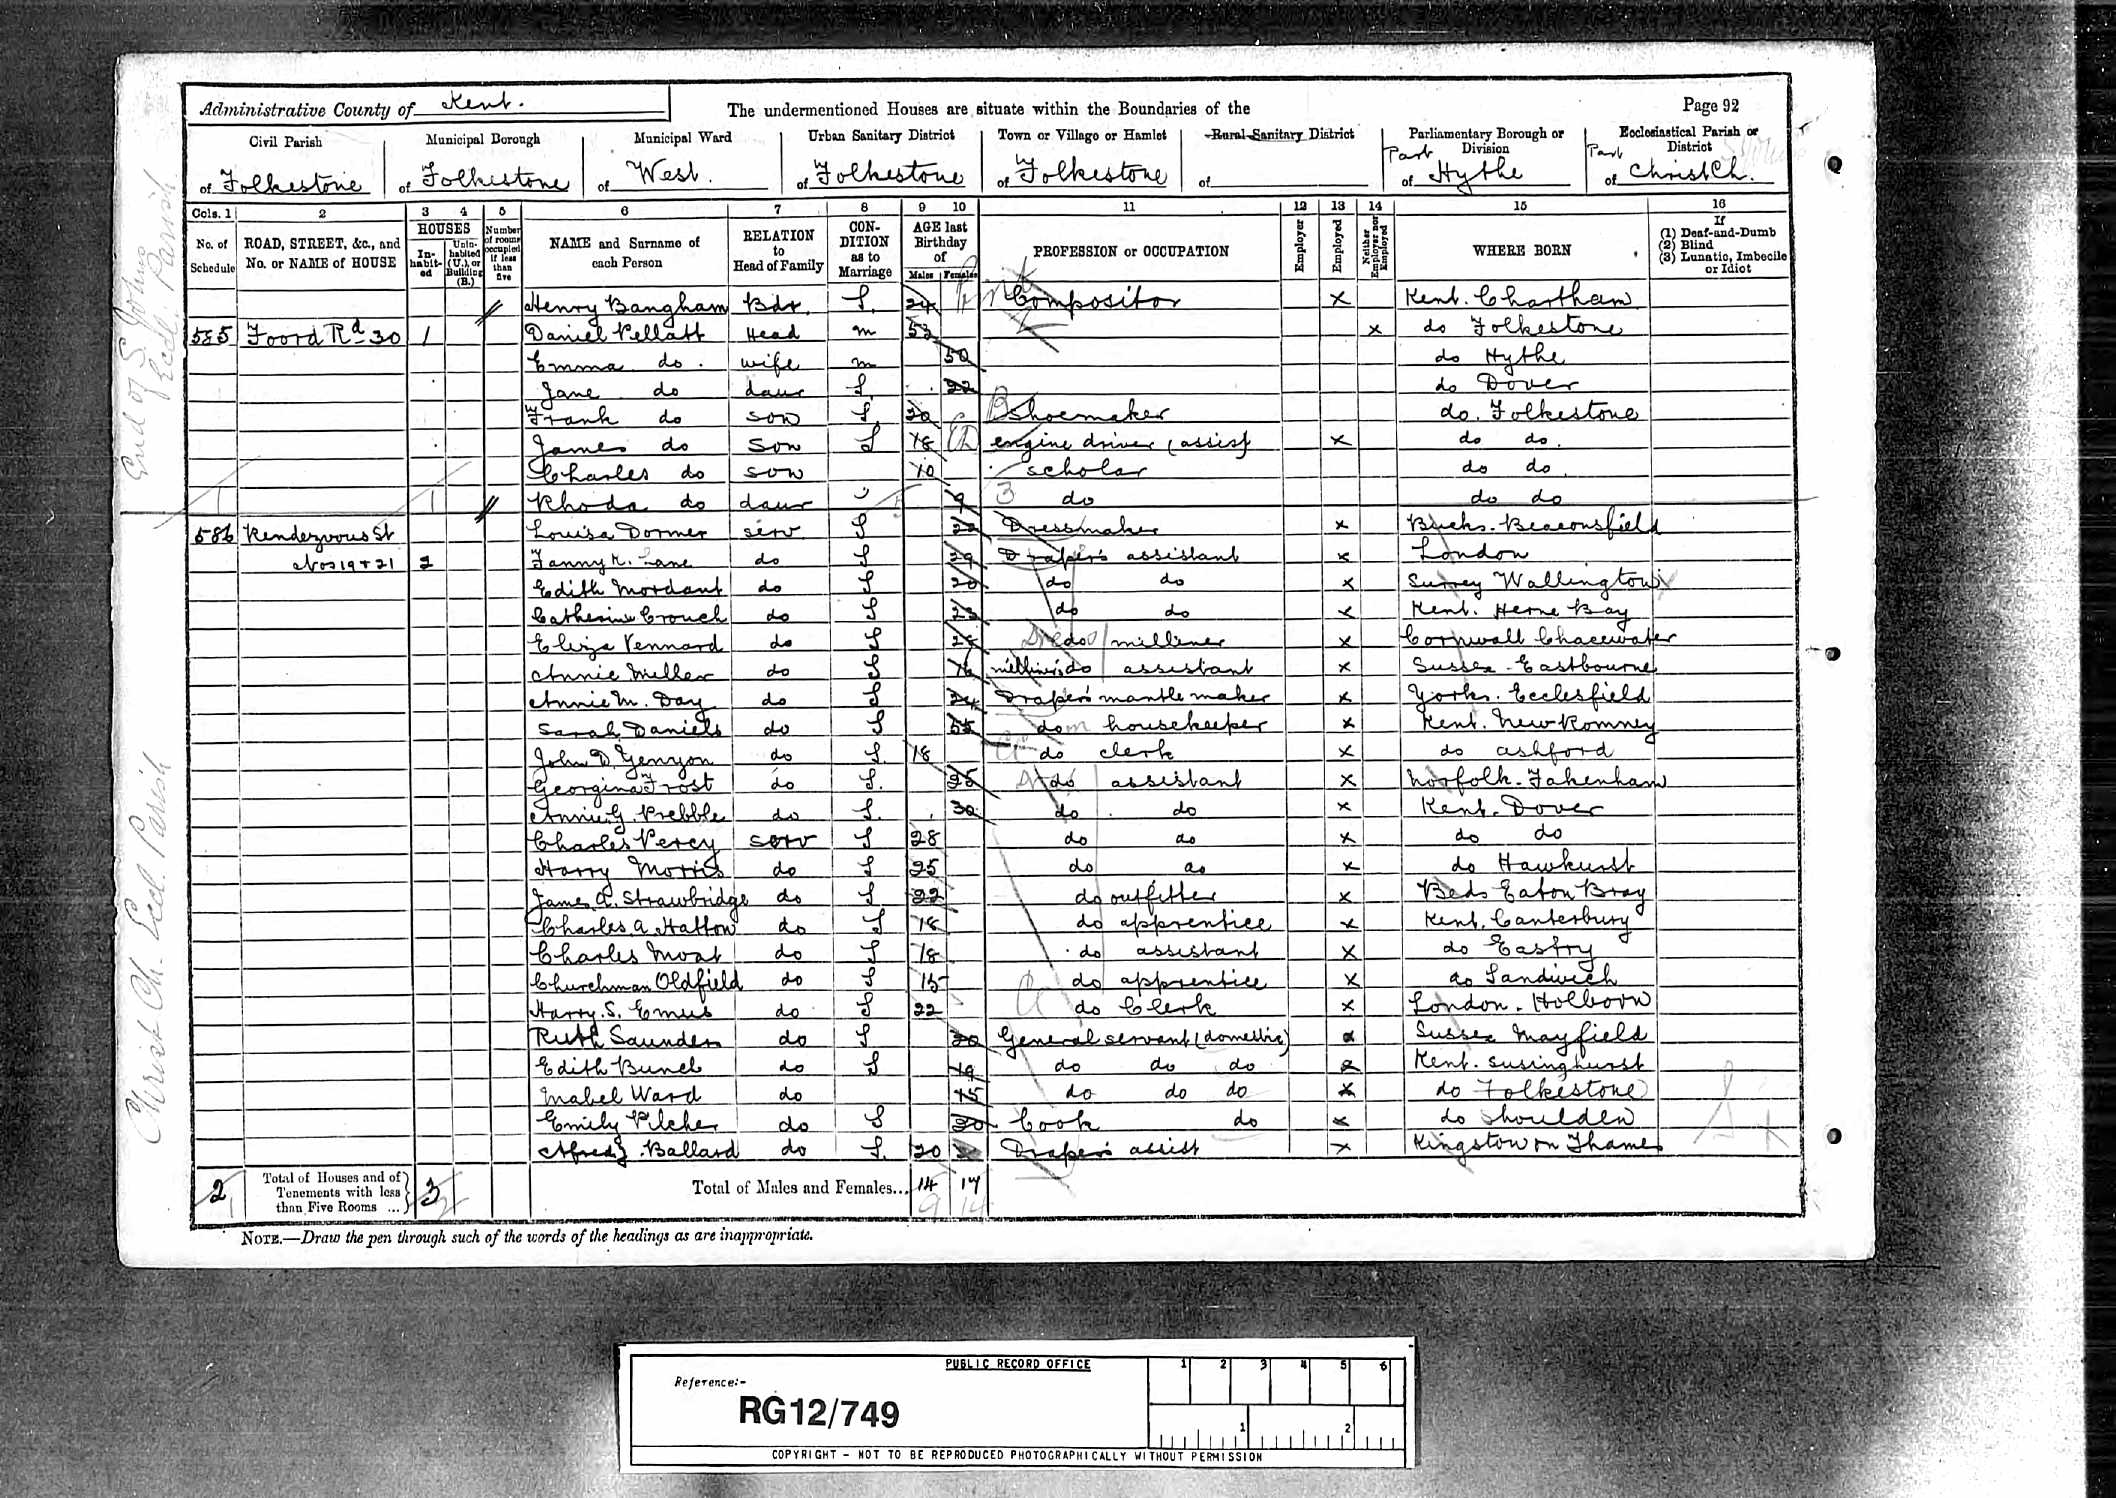 Administrative County of Kent.
The undermentioned Houses are situate within the Boundaries of the
Page 92
Civil Parish of Folkestone
Municipal Borough of Folkestone
Municipal Ward of West.
Urban Sanitary District of Folkestone
Town or Village or Hamlet of Folkestone
Rural Sanitary District of
Parliamentary Borough or Division of Part Hythe
Ecclesiastical Parish or District of Part Christ Ch.
Cols. 1 2 3 4 5 6 7 8 9 10 11 12 13 14 15 16
No. of Schedule
ROAD, STREET, &c., and No. or NAME of HOUSE
HOUSES
In-habit-ed
Unin-habited (U.), or Building (B.)
Number of rooms occupied if less than five
NAME and Surname of each Person
RELATION to Head of Family
CON-DITION as to Marriage
AGE last Birthday of
Males Females
PROFESSION or OCCUPATION
Employer
Employed
Neither Employer nor Employed
WHERE BORN
If (1) Deaf-and-Dumb (2) Blind (3) Lunatic, Imbecile or Idiot
Henry Bangham Bdr. S. 24 Compositor x Kent. Chartham
585 Foord Rd 30 1 Daniel Pellatt Head m 53 x do Folkestone
Emma do. wife m 50 do Hythe
Jane do daur S. 22 do Dover
Frank do son S. 20 Shoemaker do. Folkestone
James do son S 18 engine driver (assist) x do do.
Charles do son 10 scholar do do.
Rhoda do daur 9 do do do
586 Rendezvous St Louisa Dormer serv S 22 Dressmaker x Bucks. Beaconsfield
Nos 19 + 21 2 Fanny K. Lane do S 29 Draper's assistant x London
Edith Mordant do S 20 do do x Surrey Wallington
Catherine Crouch do S 23 do do x Kent. Herne Bay
Eliza Vennard do S 28 do milliner x Cornwall Chacewater
Annie Miller do S 16 milliner's do assistant x Sussex. Eastbourne
Annie M. Day do S 24 Draper's mantle maker x Yorks. Ecclesfield
Sarah Daniels do S 55 do housekeeper x Kent. New Romney
John D. Genyon do S. 18 do clerk x do Ashford
Georgina Frost do S. 25 do assistant x Norfolk. Fakenham
Annie G. Prebble do S. 30 do do x Kent. Dover
Charles Percy serv S 28 do do x do do
Harry Morris do S 25 do do x do Hawkurst
James A. Strawbridge do S 22 do outfitter x Beds Eaton Bray
Charles A. Hatton do S 18 do apprentice x Kent. Canterbury
Charles Moat do S 18 do assistant x do Eastry
Churchman Oldfield do S 15 do apprentice x do Sandwich
Harry. S. Emus do S 22 do Clerk x London. Holborn
Ruth Saunders do S 20 General servant (domestic) x Sussex Mayfield
Edith Bunce do S 19 do do do x Kent. Susinghurst
Mabel Ward do 15 do do do x do Folkestone
Emily Pilcher do S 30 Cook do x do Shoulden
Alfred J. Ballard do S. 20 Draper's assist x Kingston on Thames
2 Total of Houses and of Tenements with less than Five Rooms ... 3 Total of Males and Females... 14 17
9 14
NOTE.—Draw the pen through such of the words of the headings as are inappropriate.
End of S. Johns Eccl. Parish
Christ Ch. Eccl. Parish
PUBLIC RECORD OFFICE
1 2 3 4 5 6
Reference:-
RG12/749
1 2
COPYRIGHT - NOT TO BE REPRODUCED PHOTOGRAPHICALLY WITHOUT PERMISSION